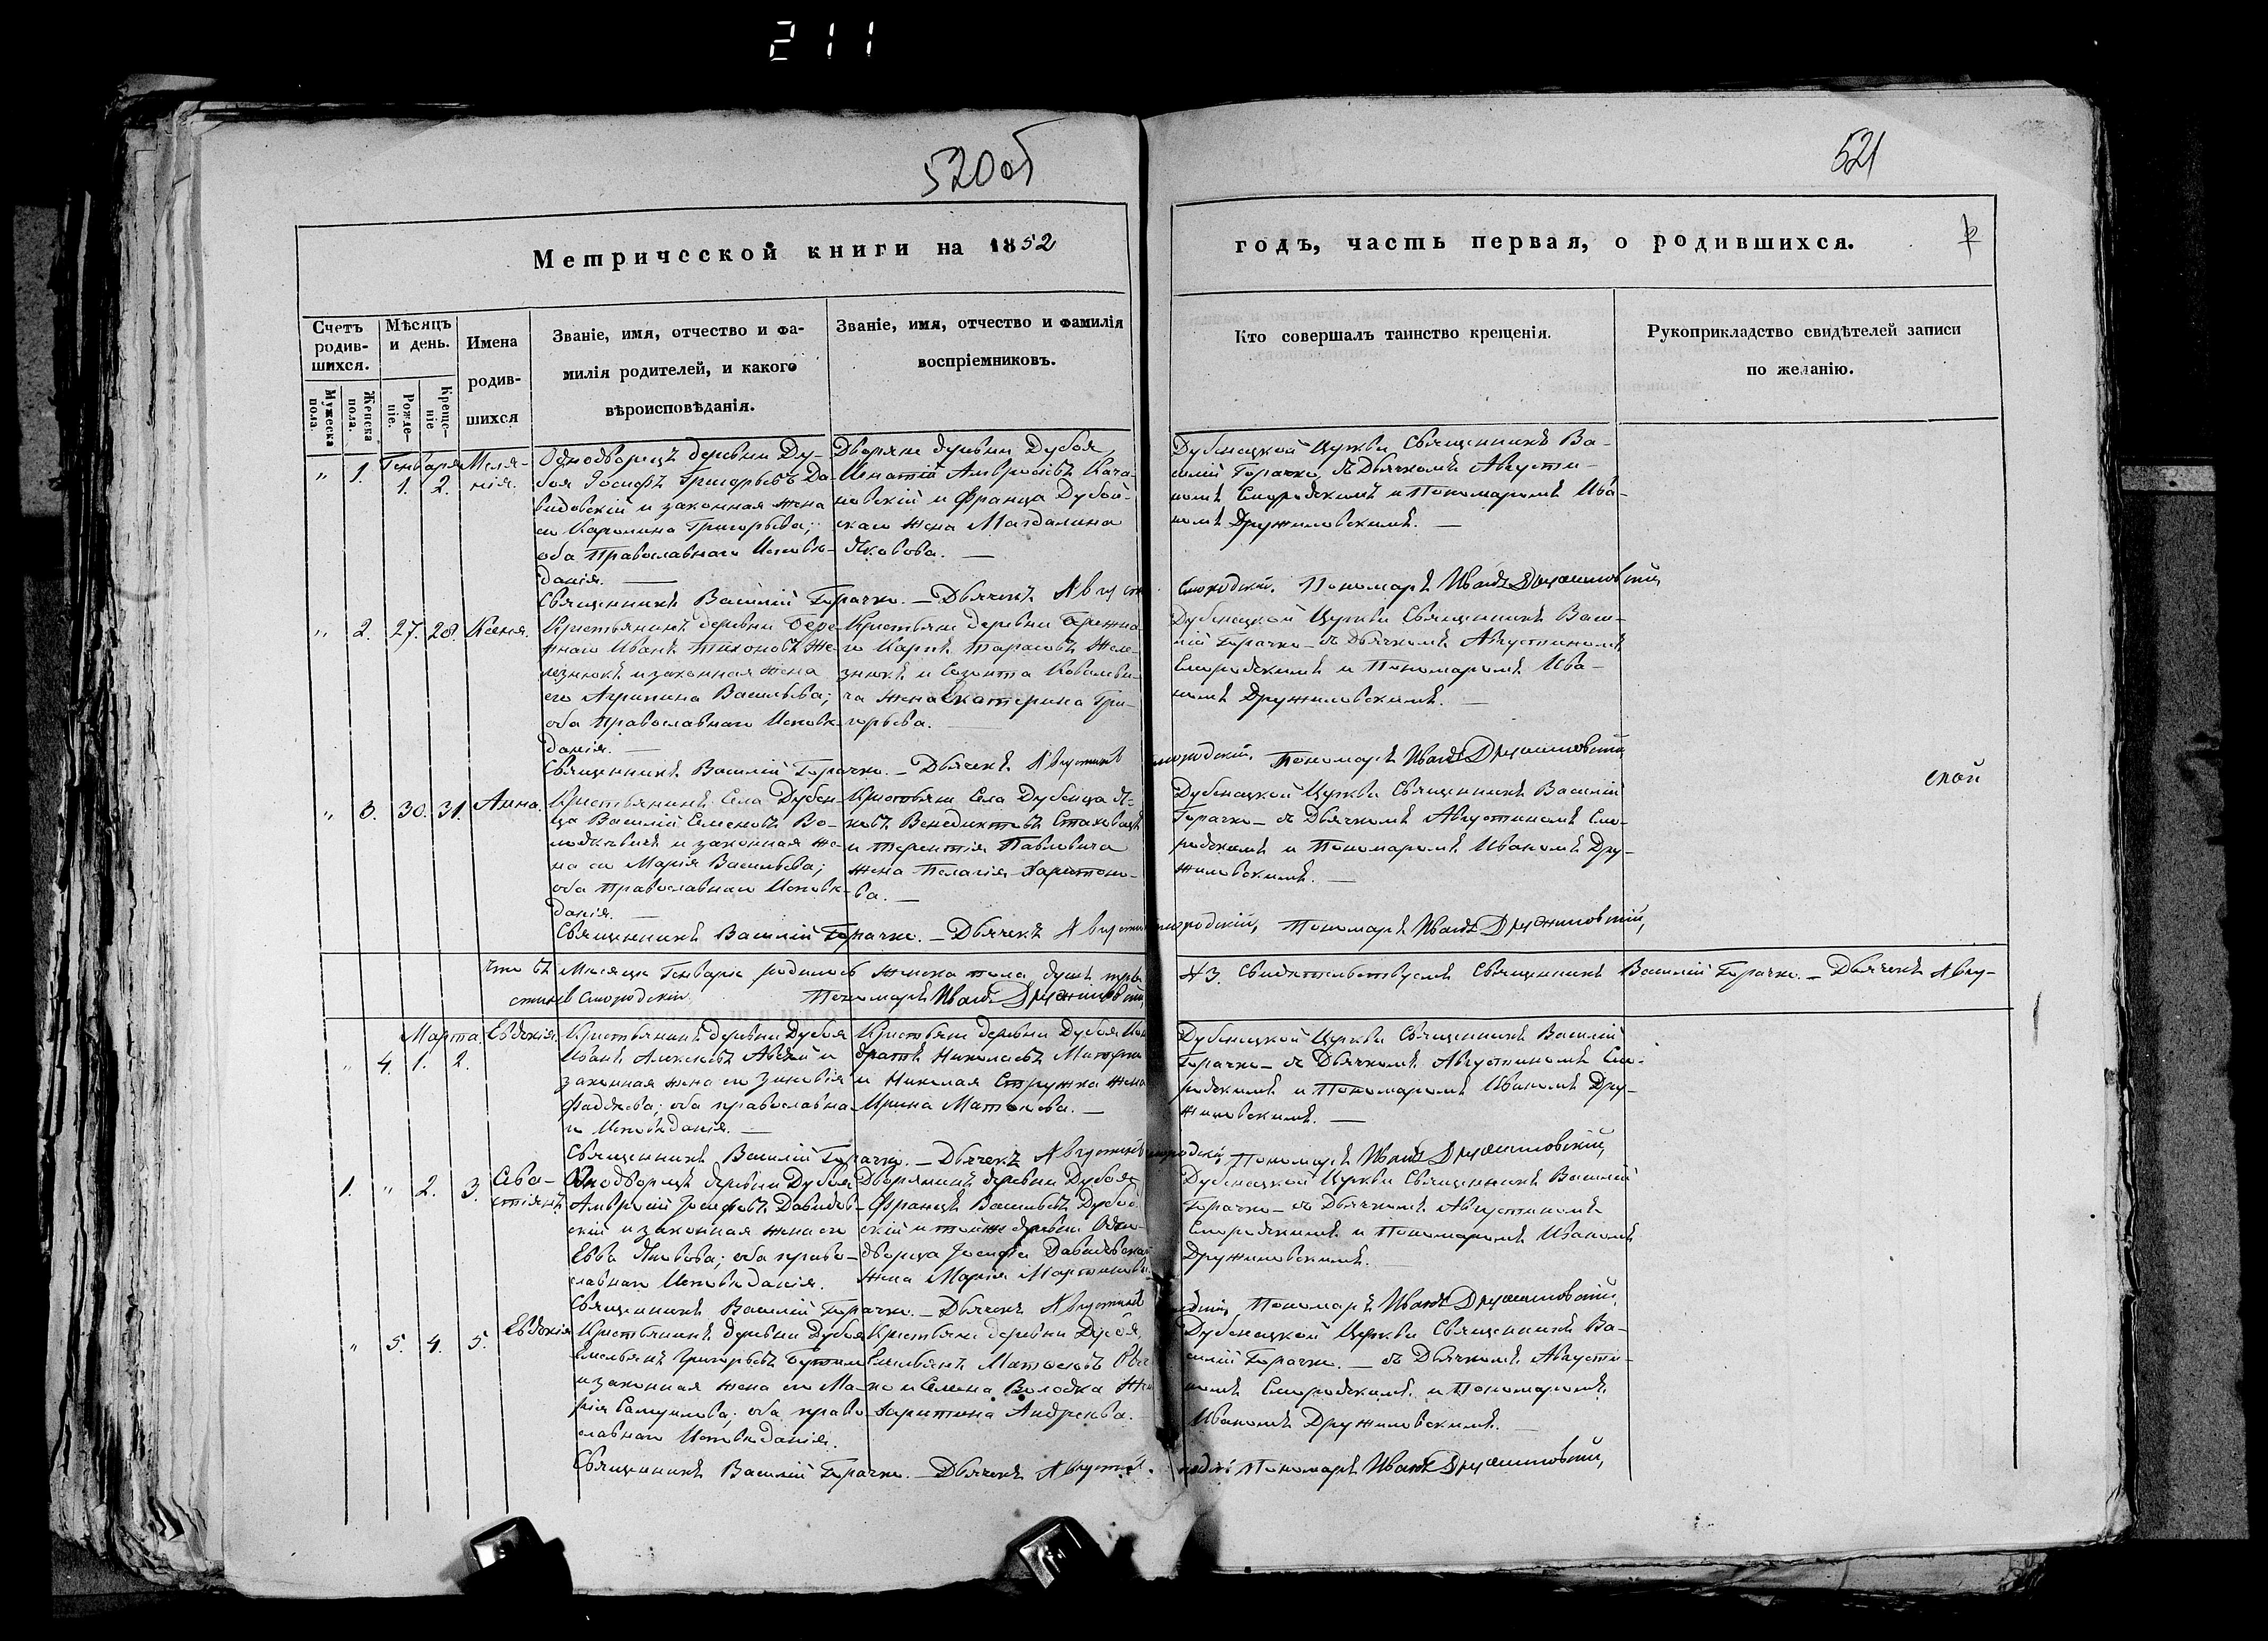 211
520об
521
Метрической книги на 1852
годъ, часть первая, о родившихся.
Счетъ родив-шихся.
Мѣсяцъ и день.
Имена родив-шихся
Званіе, имя, отчество и фа-
милія родителей, и какого
вѣроисповѣданія.
Званіе, имя, отчество и фамилія
воспріемниковъ.
Кто совершалъ таинство крещенія.
Рукоприкладство свидѣтелей записи
по желанію.
Мужеска пола.
Женска пола.
Рожде-ніе.
Креще-ніе
" 1. Генваря 1. 2. Мела-нія.
Однодворецъ деревни Ду-
боя Іосифъ Григорьевъ Да-
видовскій и законная жена
его Каролина Григорьева;
оба Православнаго Исповѣ-
данія.
Дворяне деревни Дубоя
Игнатій Амвросіевъ Кача-
новскій и Франца Дубой-
скаго жена Магдалина
Яковова.
Дубенецкой Церкви Священникъ Ва-
силій Горачко съ Дьячкомъ Августи-
номъ Смородскимъ и Пономаремъ Ива-
номъ Дружиловскимъ.
Священникъ Василій Горачко. Дьячекъ Августинъ Смородскій. Пономарь Иванъ Дружиловскій
" 2. 27. 28. Ксенія.
Крестьянинъ деревни Бере-
жнаго Иванъ Тихоновъ Же-
лезнюкъ и законная жена
его Агрипина Васильева;
оба Православнаго Исповѣ-
данія.
Крестьяне деревни Бережна-
го Карпъ Тарасовъ Желе-
знюкъ и Созонта Ковалеви-
ча жена Екатерина Гри-
горьева.
Дубенецкой Церкви Священникъ Васи-
лій Горачко съ Дьячкомъ Августиномъ
Смородскимъ и Пономаремъ Ива-
номъ Дружиловскимъ.
Священникъ Василій Горачко. Дьячекъ Августинъ Смородскій, Пономарь Иванъ Дружиловскій
" 3. 30. 31. Анна.
Крестьянинъ Села Дубен-
ца Василій Семеновъ Во-
лодкевичъ и законная же-
на его Марія Васильева;
оба православнаго Исповѣ-
данія.
Крестьяне Села Дубенца Я-
ковъ Венедиктовъ Стаховецъ
и Терентія Павловича
жена Пелагія Харитоно-
ва.
Дубенецкой Церкви Священникъ Василій
Горачко съ Дьячкомъ Августиномъ Смо-
родскимъ и Пономаремъ Иваномъ Дру-
жиловскимъ.
Священникъ Василій Горачко. Дьячекъ Августинъ Смородскій, Пономарь Иванъ Дружиловскій,
что въ Месяцѣ Генварѣ родилось женска пола душъ три 3. Свидѣтельствуемъ Священникъ Василій Горачко. Дьячекъ Авгу-
стинъ Смородскій Пономарь Иванъ Дружиловскій
" 4. Марта 1. 2. Евдокія.
Крестьянинъ деревни Дубоя
Иванъ Алексѣевъ и
законная жена его Зиновія
Фаддѣева; оба православна-
го Исповѣданія.
Крестьяне деревни Дубоя
Николаевъ
и Николая Стружка жена
Ирина
Дубенецкой Церкви Священникъ Василій
Горачко съ Дьячкомъ Августиномъ Смо-
родскимъ и Пономаремъ Иваномъ Дру-
жиловскимъ.
Священникъ Василій Горачко. Дьячекъ Августинъ Смородскій, Пономарь Иванъ Дружиловскій,
1. " 2. 3. Сева-стіянъ.
Однодворецъ деревни Дубоя
Амвросій Іосифовъ Давидов-
скій и законная жена его
Евва Яковова; оба право-
славнаго Исповѣданія.
Дворянинъ деревни Дубоя
Францъ Васильевъ Дубой-
скій и тойже деревни Одно-
дворца Іосифа Давидовскаго
жена Марія Мартинова.
Дубенецкой Церкви Священникъ Василій
Горачко съ Дьячкомъ Августиномъ
Смородскимъ и Пономаремъ Иваномъ
Дружиловскимъ.
Священникъ Василій Горачко. Дьячекъ Августинъ Пономарь Иванъ Дружиловскій,
" 5. 4. 5. Евдокія
Крестьянинъ деревни Дубоя
Емельянъ Григорьевъ
и законная жена его Ма-
рія Самуилова; оба право-
славнаго Исповѣданія.
Крестьяне деревни Дубоя,
Емельянъ
и Семена Володка жена
Харитина Андреева.
Дубенецкой Церкви Священникъ Ва-
силій Горачко. съ Дьячкомъ Августи-
номъ Смородскимъ и Пономаремъ
Иваномъ Дружиловскимъ.
Священникъ Василій Горачко. Дьячекъ Августинъ Пономарь Иванъ Дружиловскій,
ской